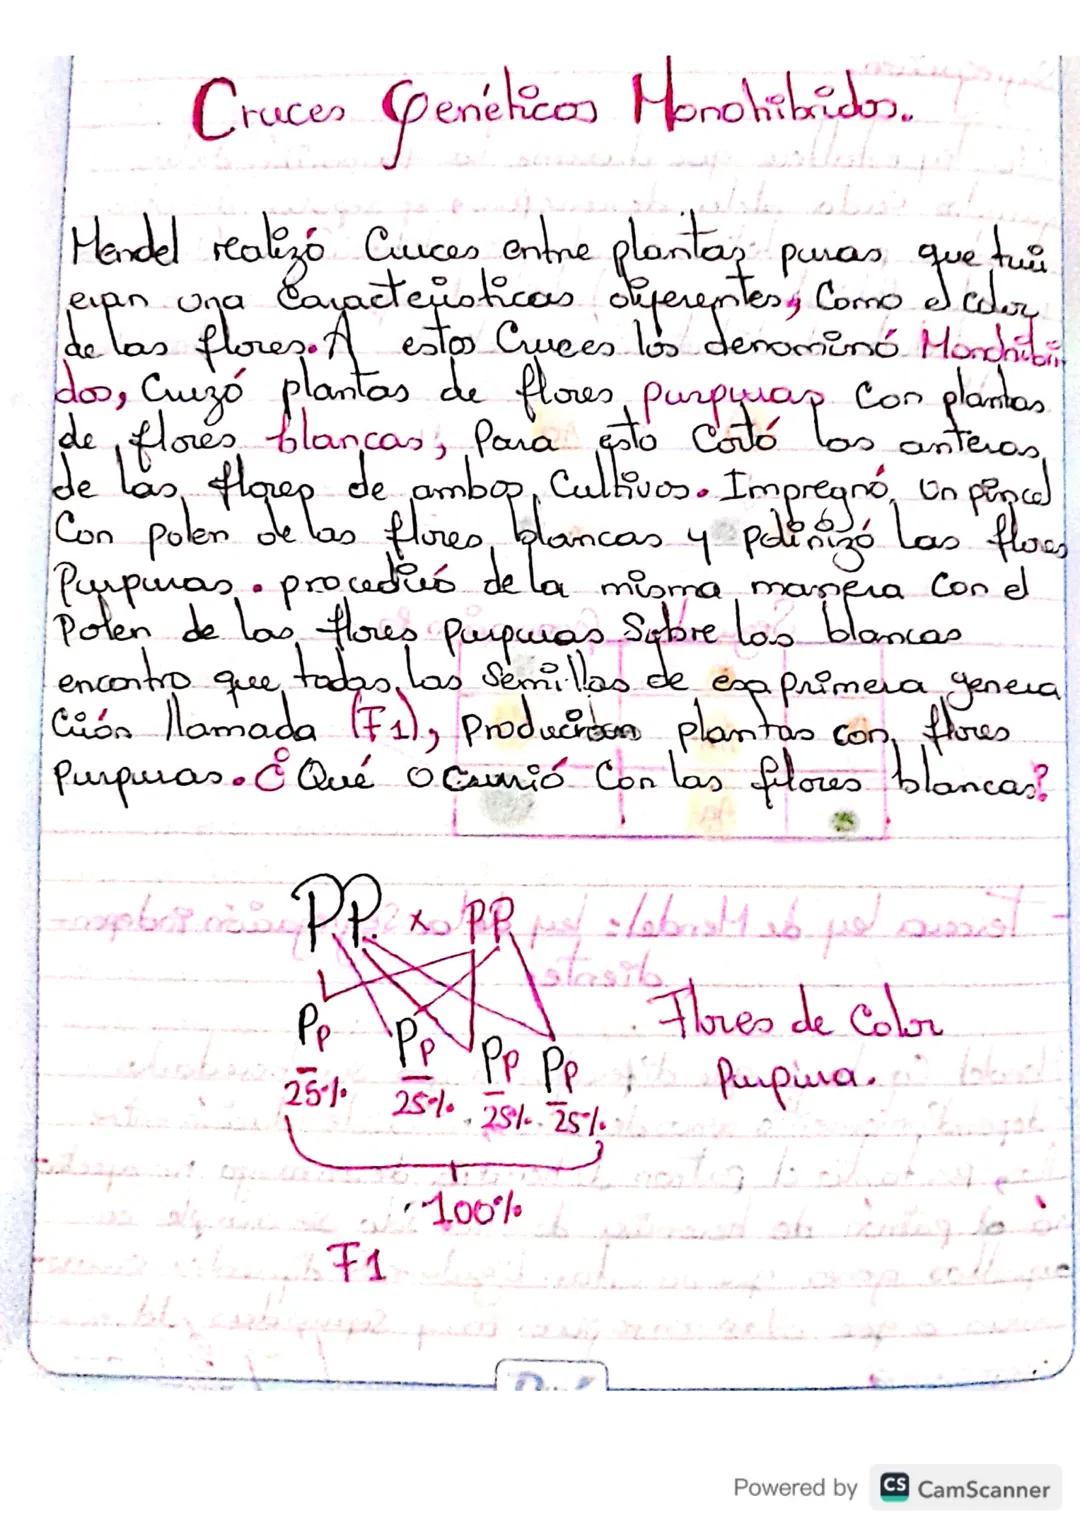 Cruces Genéticos Monohibridos.
Mendel realizó Cruces entre plantas puras que tuvi
eran una Caracteristicas diferentes, Como el color
de las flores. A estos Cruces los denominó Monohibri
dos, Cruzó plantas de flores purpuras Con plantas
de flores blancas, Para esto Cortó las anteras
de las flores de ambos Cultivos. Impregnó Un pincel
Con polen de las flores blancas y polinizó las flores
Purpuras. procedió de la misma manera Con el
Polen de las flores purpuras Sobre las blancas
encontro que todas las Semillas de esa primera genera
ción llamada (F1), Producieron plantas con flores
Purpuras. ¿Qué Ocurrió Con las flores blancas?
PP x pp
Pp Pp Pp Pp
25% 25% 25% 25%
Flores de Color
Purpura.
100%
F1
Powered by CS CamScanner